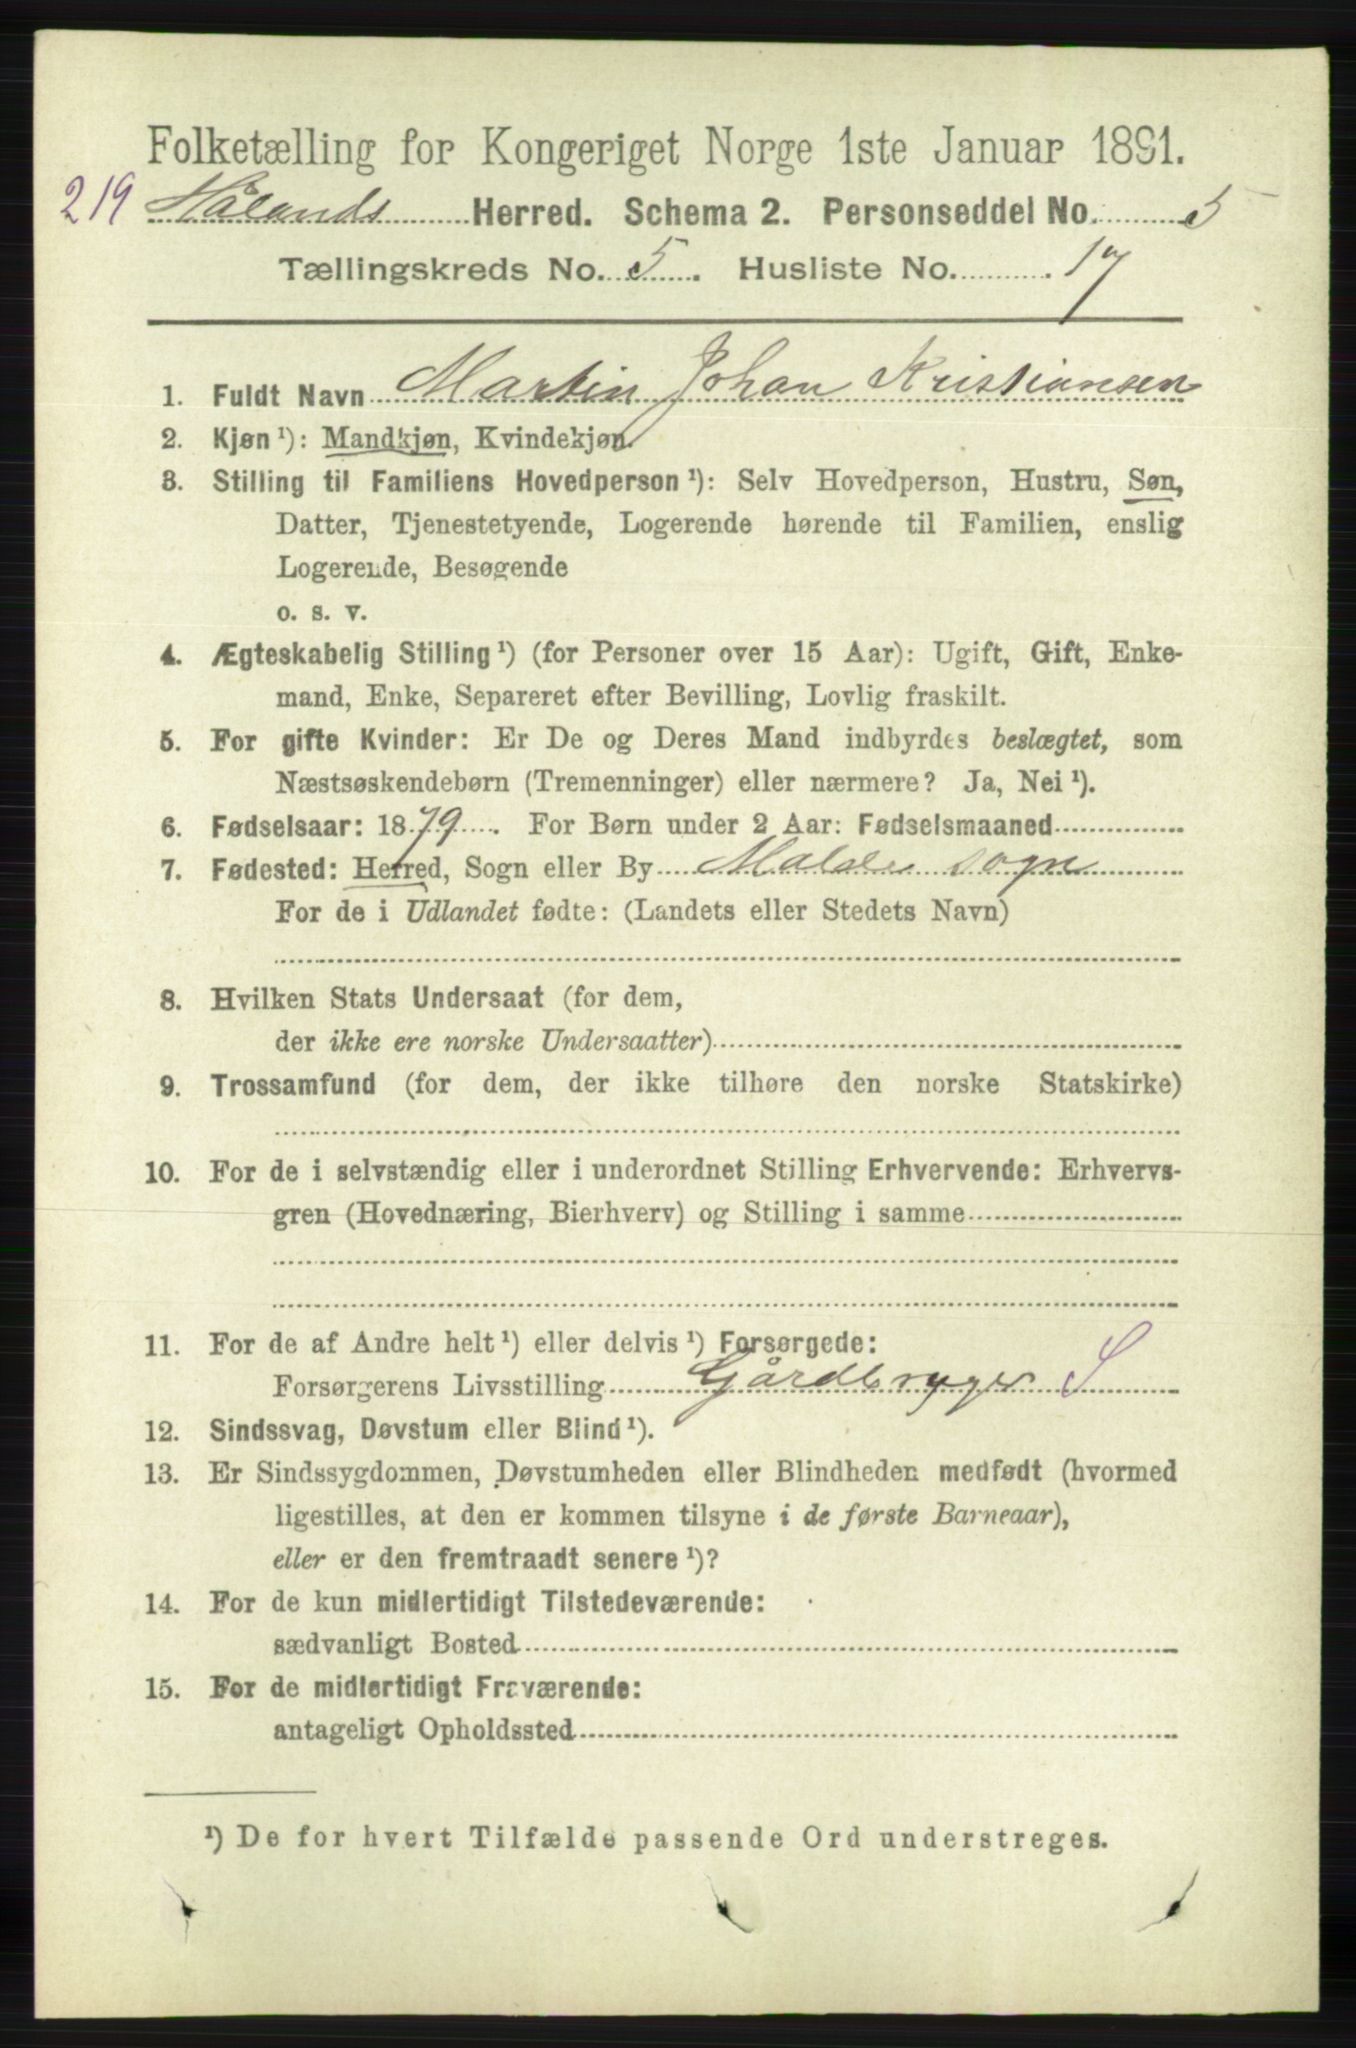 Folketælling for Kongeriget Norge 1ste Januar 1891.
219 Hålands Herred. Schema 2. Personseddel No. 5
Tællingskreds No. 5. Husliste No. 17
1. Fuldt Navn Martin Johan Kristiansen
2. Kjøn ¹): Mandkjøn, Kvindekjøn.
3. Stilling til Familiens Hovedperson ¹): Selv Hovedperson, Hustru, Søn,
Datter, Tjenestetyende, Logerende hørende til Familien, enslig
Logerende, Besøgende
o. s. v.
4. Ægteskabelig Stilling ¹) (for Personer over 15 Aar): Ugift, Gift, Enke-
mand, Enke, Separeret efter Bevilling, Lovlig fraskilt.
5. For gifte Kvinder: Er De og Deres Mand indbyrdes beslægtet, som
Næstsøskendebørn (Tremenninger) eller nærmere? Ja, Nei ¹).
6. Fødselsaar: 1879. For Børn under 2 Aar: Fødselsmaaned
7. Fødested: Herred, Sogn eller By Malde sogn
For de i Udlandet fødte: (Landets eller Stedets Navn)
8. Hvilken Stats Undersaat (for dem,
der ikke ere norske Undersaatter)
9. Trossamfund (for dem, der ikke tilhøre den norske Statskirke)
10. For de i selvstændig eller i underordnet Stilling Erhvervende: Erhvervs-
gren (Hovednæring, Bierhverv) og Stilling i samme
11. For de af Andre helt ¹) eller delvis ¹) Forsørgede:
Forsørgerens Livsstilling Gårdbruger S
12. Sindssvag, Døvstum eller Blind ¹).
13. Er Sindssygdommen, Døvstumheden eller Blindheden medfødt (hvormed
ligestilles, at den er kommen tilsyne i de første Barneaar),
eller er den fremtraadt senere ¹)?
14. For de kun midlertidigt Tilstedeværende:
sædvanligt Bosted
15. For de midlertidigt Fraværende:
antageligt Opholdssted
¹) De for hvert Tilfælde passende Ord understreges.